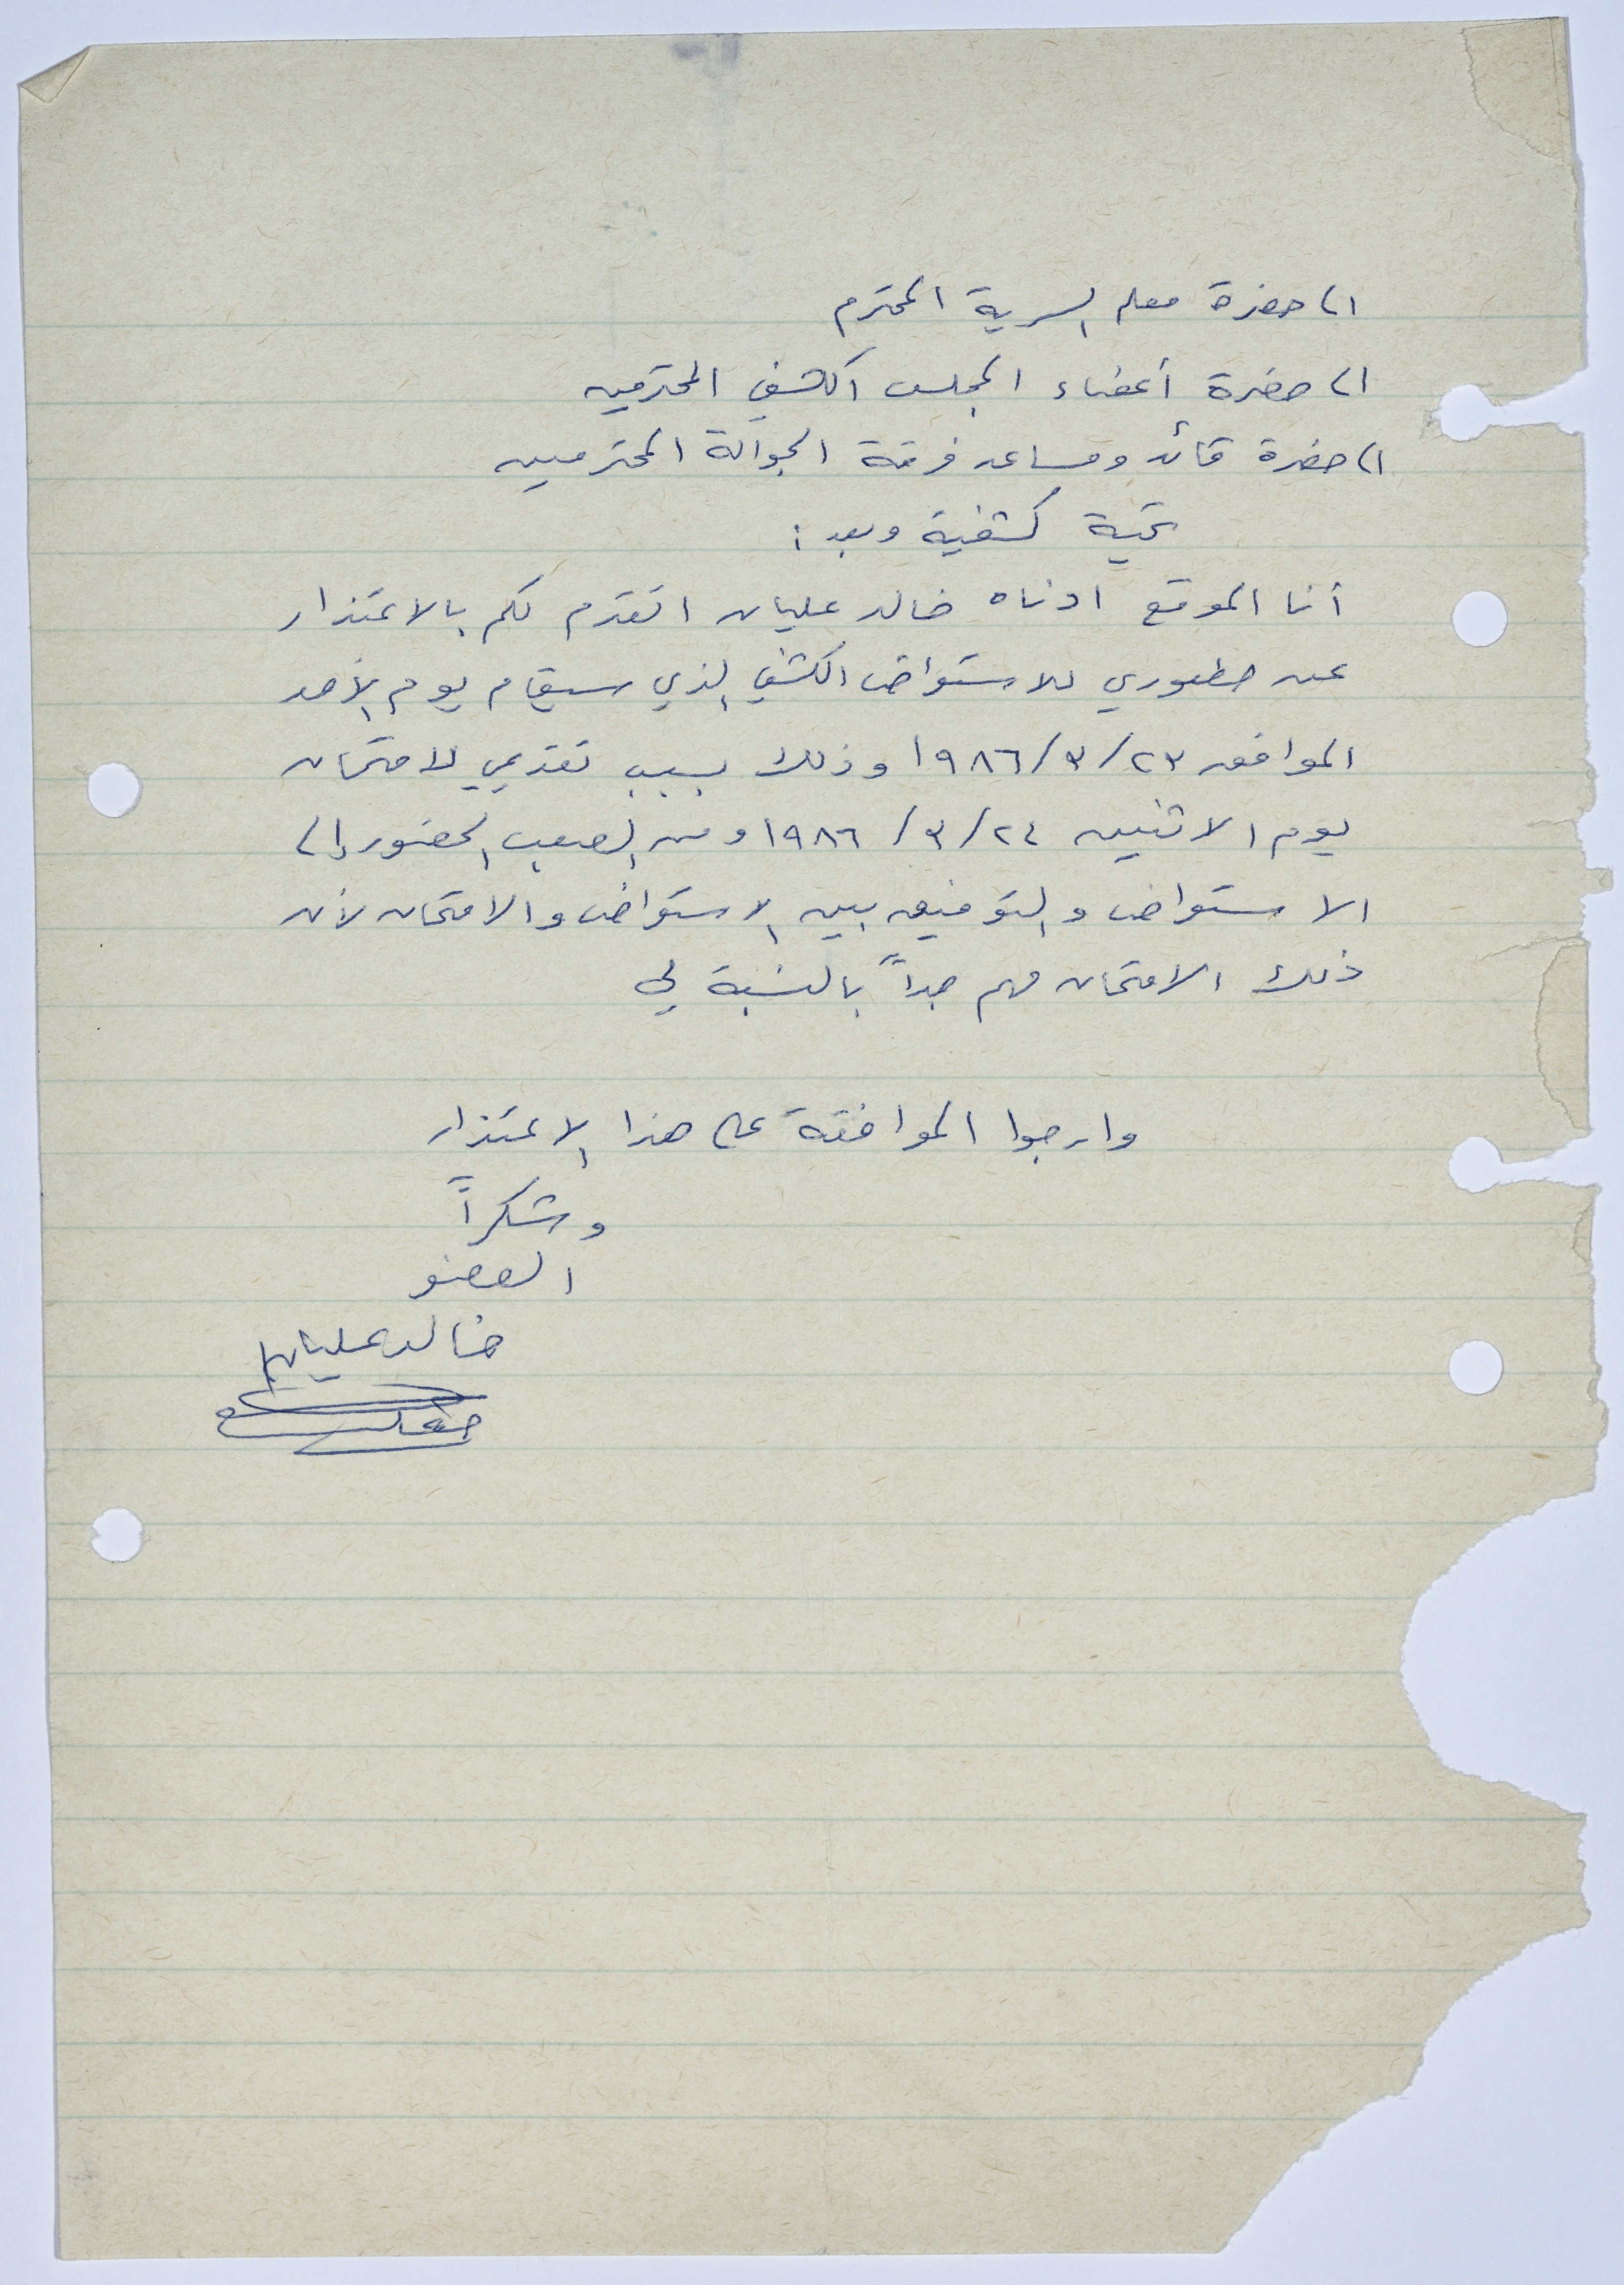 الى حضرة معلم السرية المحترم
الى حضرة أعضاء المجلس الكشفي المحترمين
الى حضرة قائد ومساعد فرقة الجوالة المحترمين
تحية كشفية وبعد :
أنا الموقع ادناه خالد عليان اتقدم لكم بالاعتذار
عن حظوري للاستعراض الكشفي الذي سيقام يوم الأحد
الموافق ٢٣/٣/١٩٨٦ وذلك بسبب تقديمي لامتحان
يوم الاثنين ٢٤/٣/١٩٨٦ ومن الصعب الحضور إلى
الاستعراض والتوفيق بين الاستعراض والامتحان لأن
ذلك الامتحان مهم جداً بالنسبة لي
وارجوا الموافقة على هذا الاعتذار
وشكراً
العضو
خالد عليان